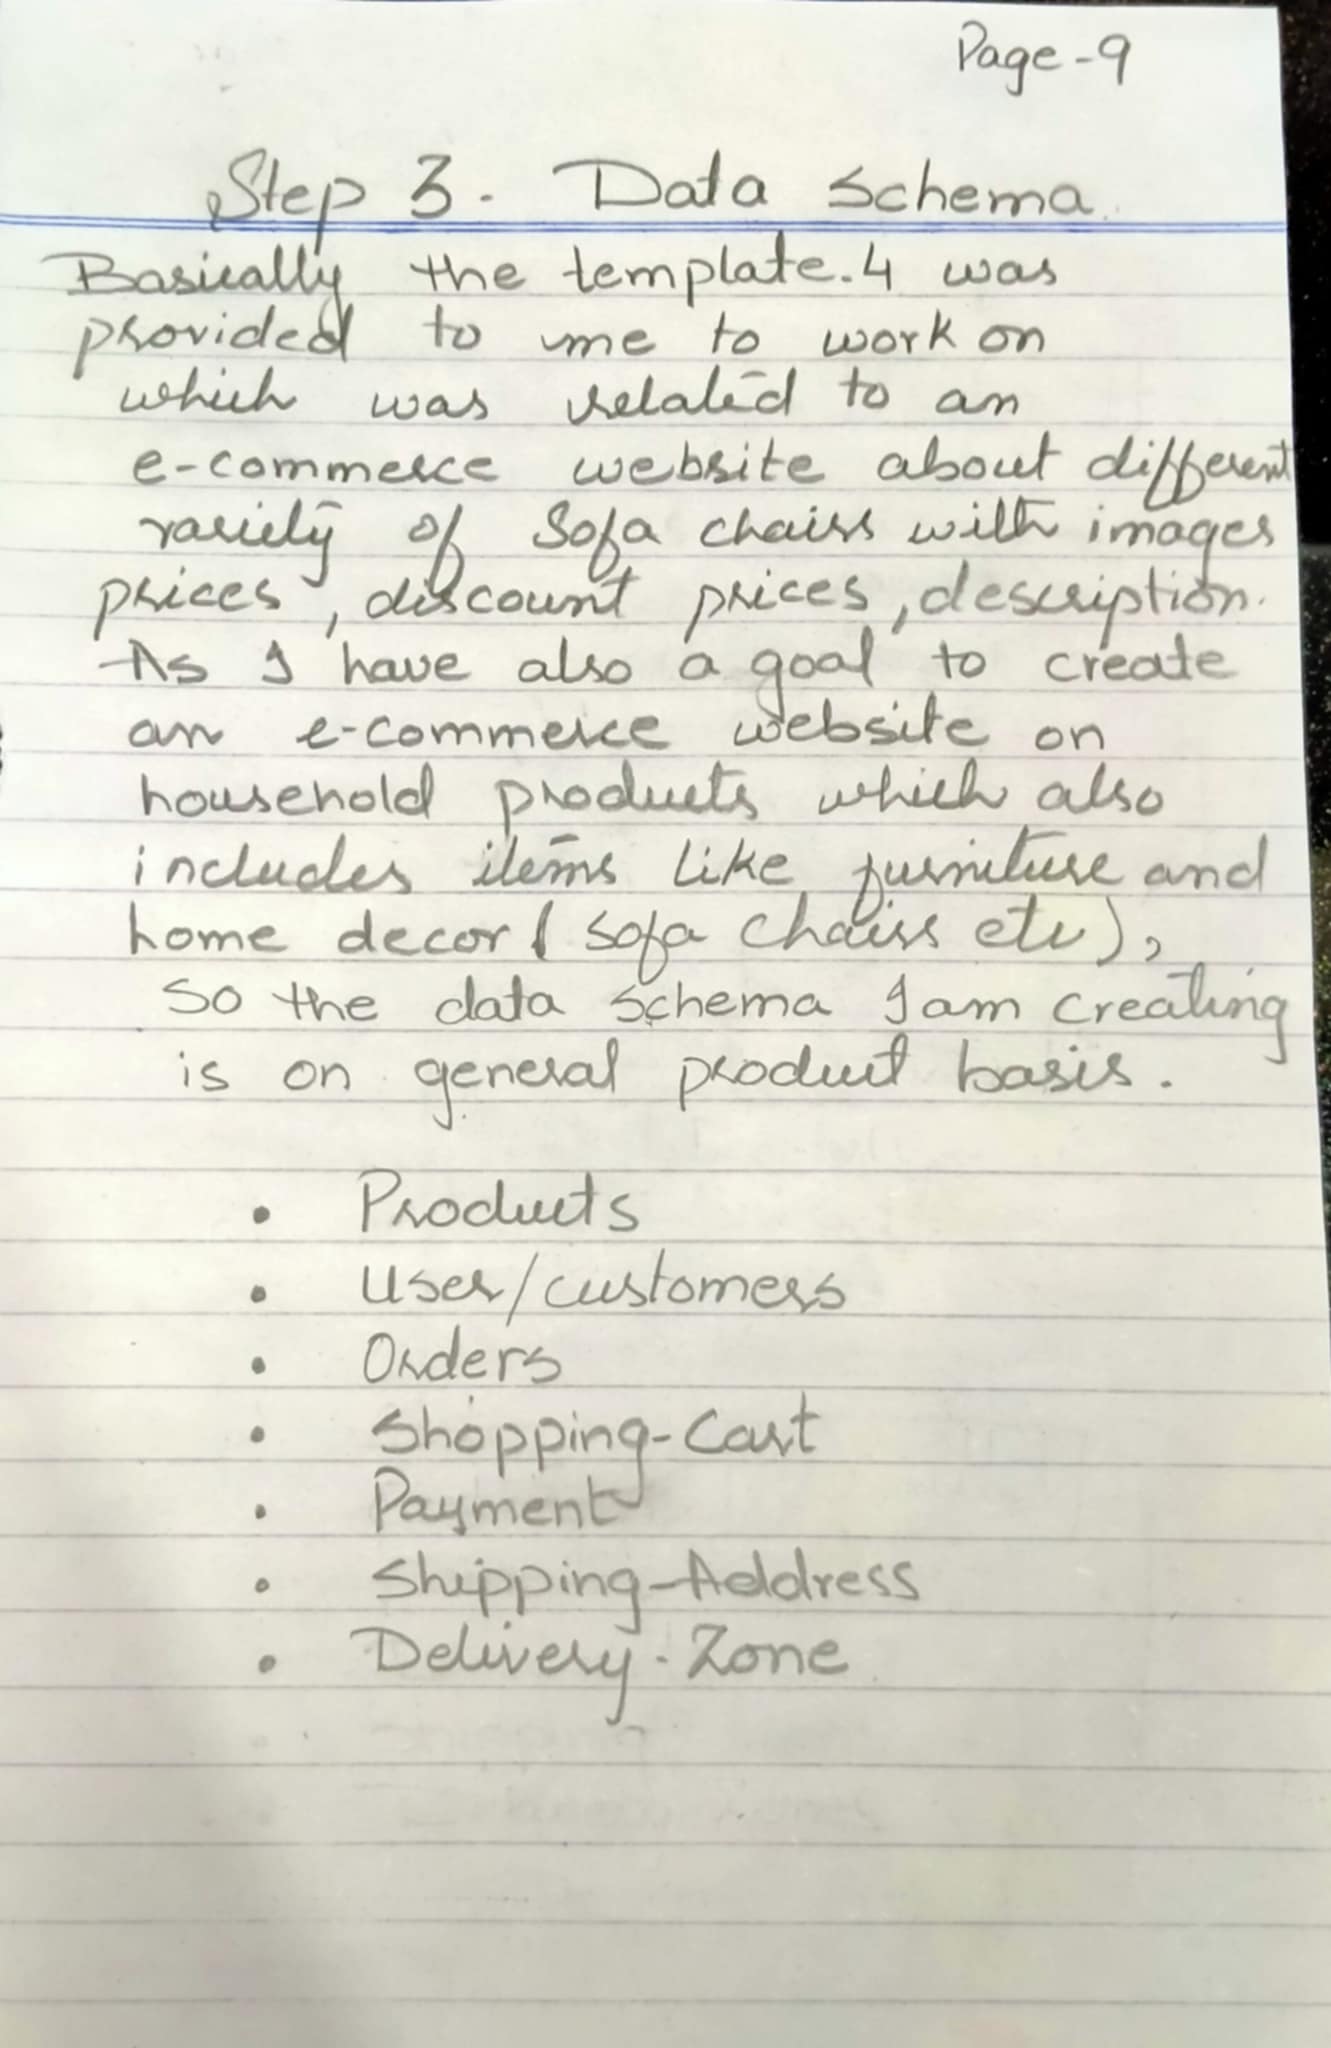 Page-9
Step 3. Data Schema
Basically the template.4 was
provided to me to work on
which was related to an
e-commerce website about different
variety of Sofa chairs with images
prices, discount prices, description.
As I have also a goal to create
an e-commerce website on
household products which also
includes items like furniture and
home decor ( sofa chairs etc),
So the data schema I am creating
is on general product basis.
• Products
• User/customers
• Orders
• Shopping-Cart
• Payment
• Shipping-Address
• Delivery-Zone